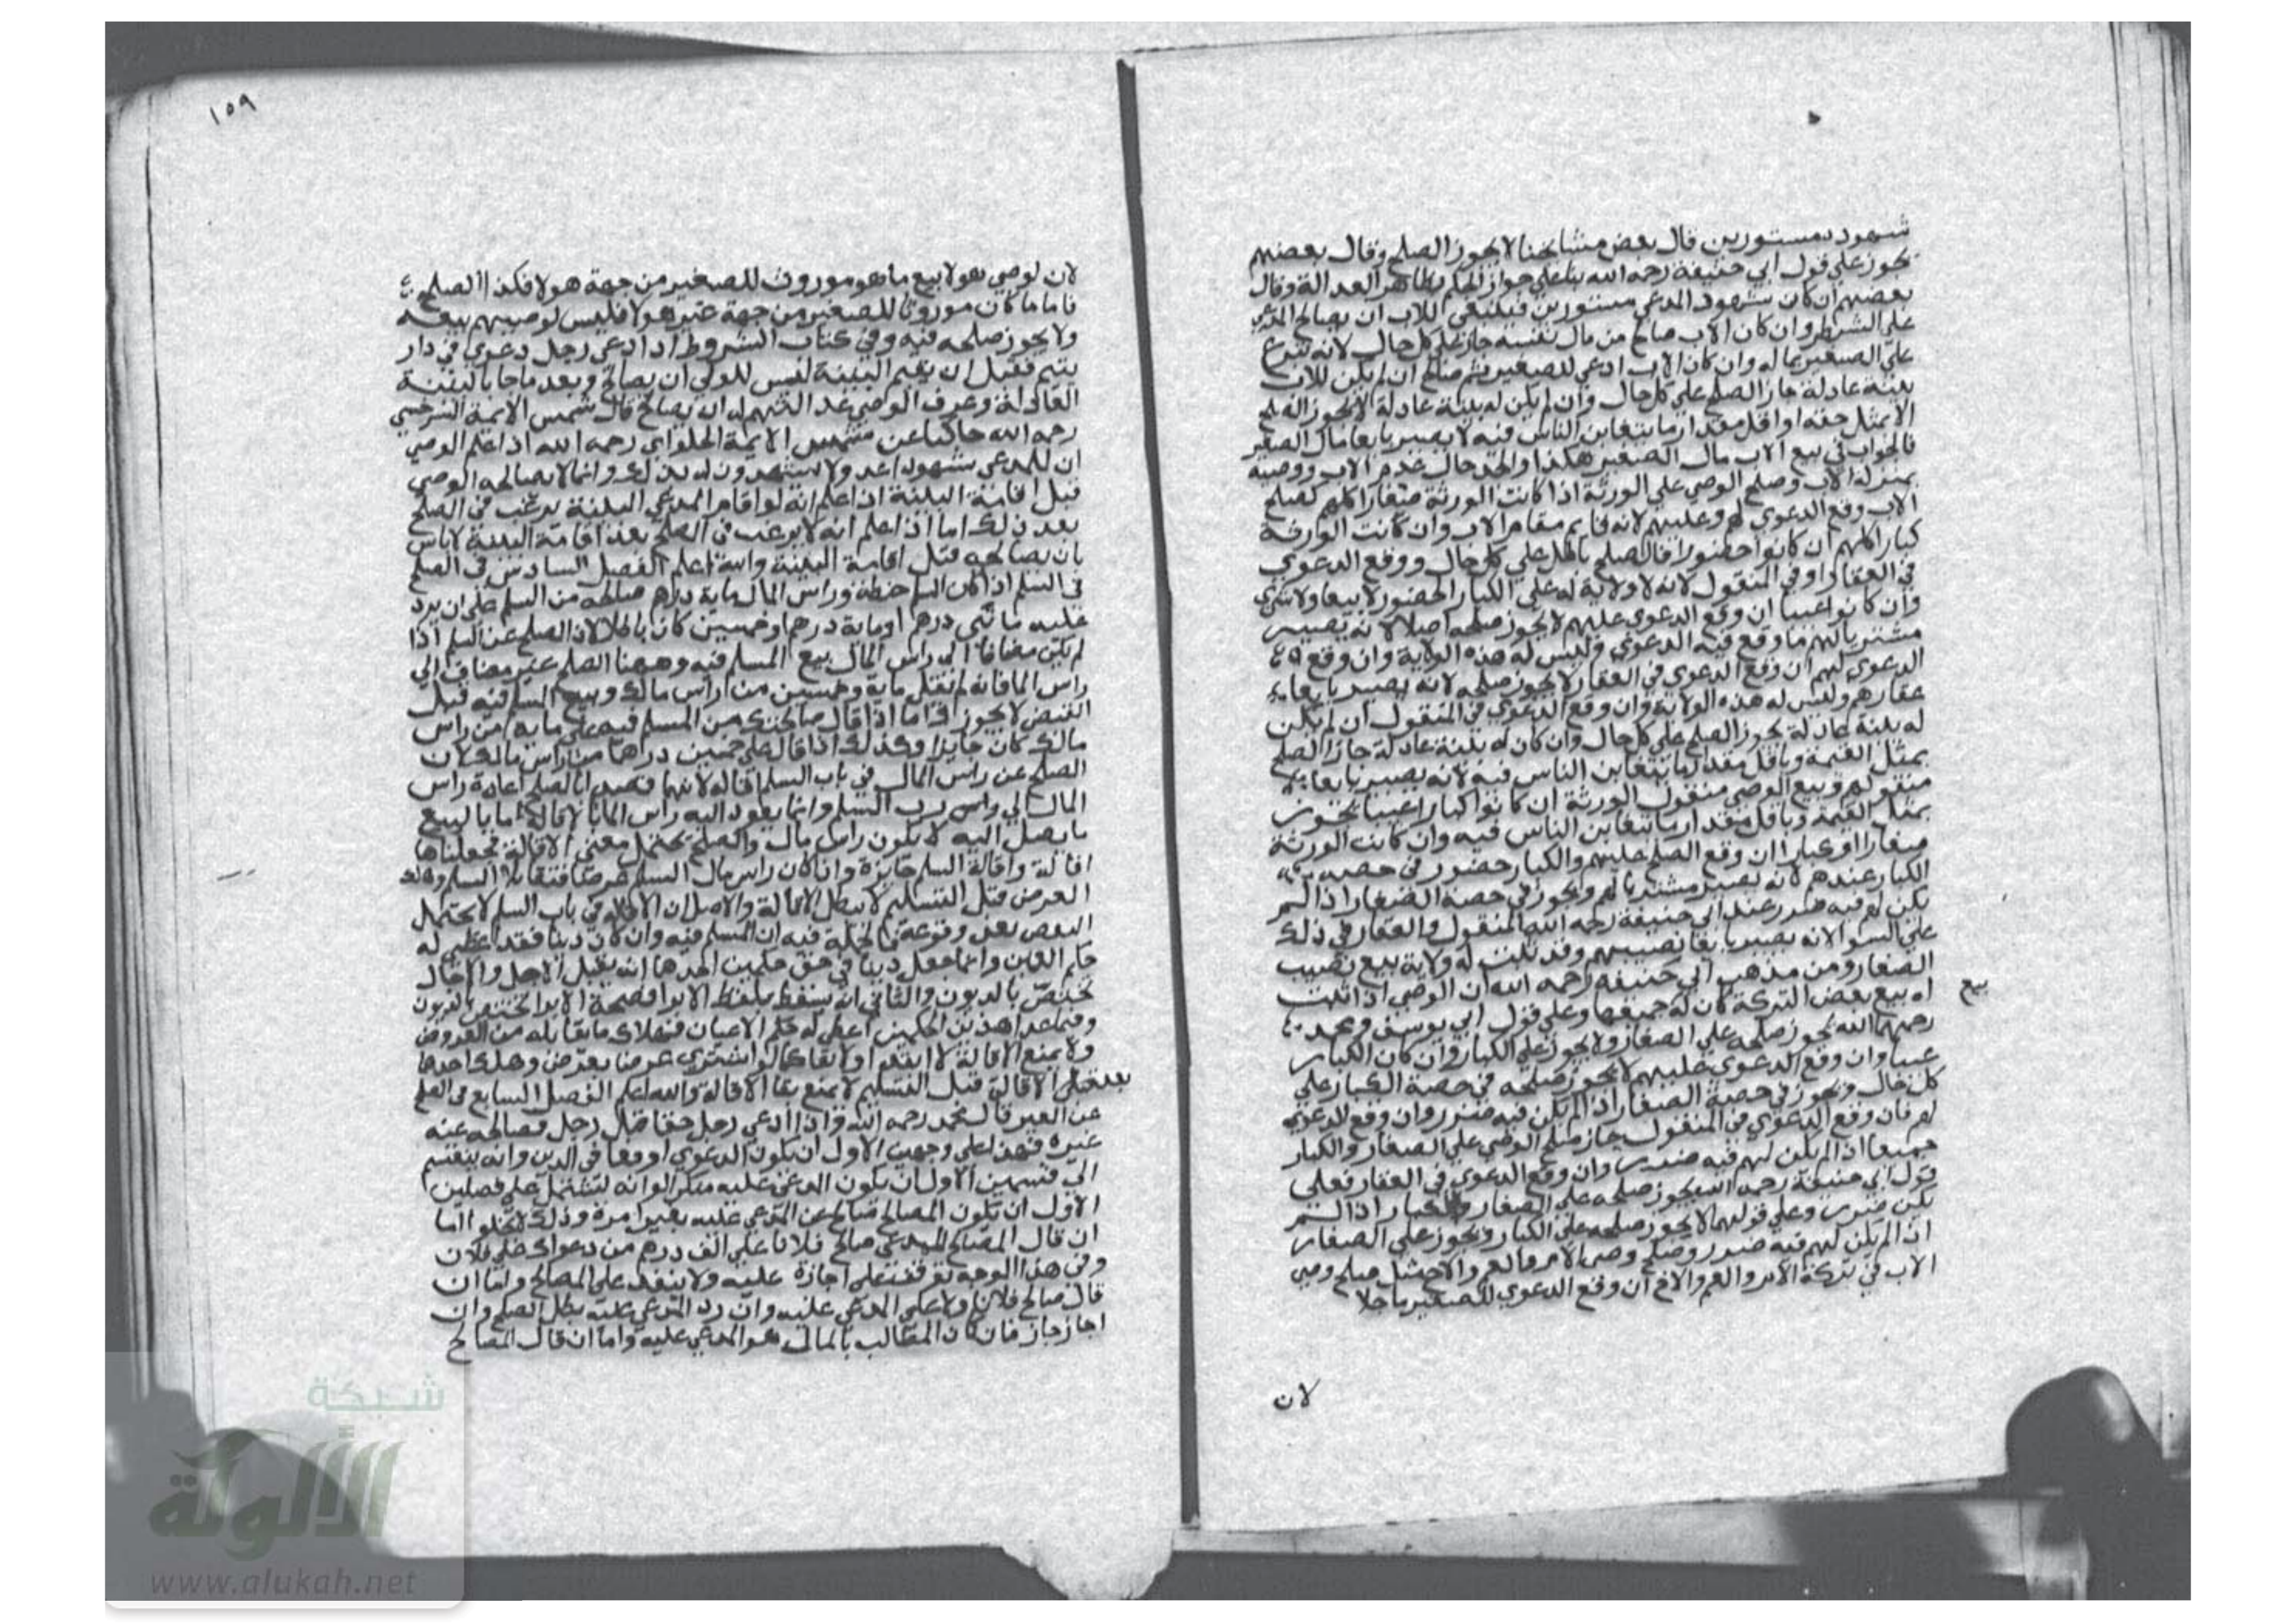 شهود مستورين قال بعض مشايخنا لا يجوز الصلح وقال بعضهم
يجوز علي قول ابي حنيفة رحمه الله بنا علي جواز الحكم بظاهر العدالة وقال
بعضهم ان كان شهود المدعي مستورين فينبغي للاب ان يصالح المدعي
علي الشرط وان كان الاب صالح من مال نفسه جاز علي كل حال لانه تبرع
علي الصغير بماله وان كان الاب ادعي للصغير ثم صالح ان لم يكن للاب
بينة عادلة جاز الصلح علي كل حال وان لم يكن له بينة عادلة لا يجوز الصلح
الا بمثل حقه او اقل مقدار ما يتغابن الناس فيه لا يصير بايعا مال الصغير
فالجواب في بيع الاب مال الصغير هكذا والجد حال عدم الاب ووصيه
بمنزلة الاب وصلح الوصي علي الورثة اذا كانت الورثة صغارا كلهم كصلح
الاب وقع الدعوي لهم وعليهم لانه قايم مقام الاب وان كانت الورثة
كبارا كلهم ان كانوا حضورا فالصلح باطل علي كل حال ووقع الدعوي
في العقار او في المنقول لانه لا ولاية له علي الكبار الحضور لا بيعا ولا شري
وان كانوا غيبا ان وقع الدعوي عليهم لا يجوز صلحه اصلا لانه يصير
مشتريا لهم ما وقع فيه الدعوي وليس له هذه الولاية وان وقع
الدعوي لهم ان وقع الدعوي في العقار لا يجوز صلحه لانه يصير بايعا
عقارهم وليس له هذه الولاية وان وقع الدعوي في المنقول ان لم يكن
له بينة عادلة يجوز الصلح علي كل حال وان كان له بينة عادلة جاز الصلح
بمثل القيمة وباقل مقدار ما يتغابن الناس فيه لانه يصير بايعا
منقولهم وبيع الوصي منقول الورثة ان كانوا كبارا غيبا يجوز
بمثل القيمة وباقل مقدار ما يتغابن الناس فيه وان كانت الورثة
صغارا او كبارا ان وقع الصلح عليهم والكبار حضور في حصة
الكبار عندهم لانه يصير مشتريا لهم ويجوز في حصة الصغار اذا لم
يكن لهم فيه ضرر عند ابي حنيفة رحمه الله المنقول والعقار في ذلك
علي السوا لانه يصير بايعا نصيبهم وقد ثبت له ولاية بيع نصيب
الصغار ومن مذهب ابي حنيفة رحمه الله ان الوصي اذا ثبت
له بيع بعض التركة كان له جميعها وعلي قول ابي يوسف ومحمد
بيع
رحمهما الله يجوز صلحه علي الصغار ولا يجوز علي الكبار وان كان الكبار
غيبا وان وقع الدعوي عليهم لا يجوز صلحه في حصة الكبار علي
كل حال ويجوز في حصة الصغار اذا لم يكن فيه ضرر وان وقع الدعوي
لهم فان وقع الدعوي في المنقول جاز صلح الوصي علي الصغار والكبار
جميعا اذا لم يكن لهم فيه ضرر وان وقع الدعوي في العقار فعلي
قول ابي حنيفة رحمه الله يجوز صلحه علي الصغار والكبار اذا لم
يكن ضرر وعلي قولهما لا يجوز صلحه علي الكبار ويجوز علي الصغار
اذا لم يكن لهم فيه ضرر وصلح وصي الام والعم والاخ مثل صلح وصي
الاب في تركة الام والعم والاخ ان وقع الدعوي للصغير
لان
١٥٩
لان لوصي هولا بيع ما هو موروث للصغير من جهة هولا فكذا الصلح
فاما ما كان موروثا للصغير من جهة غير هولا فليس لوصيهم بيعه
ولا يجوز صلحه فيه وفي كتاب الشروط اذا ادعي رجل دعوي في دار
يتيم فقبل ان يقيم البينة ليس للولي ان يصالح وبعد ما جا بالبينة
العادلة وعرف الوصي له ان يصالح قال شمس الايمة السرخسي
رحمه الله حاكيا عن شمس الايمة الحلواني رحمه الله اذا علم الوصي
ان للمدعي شهودا عدولا يشهدون له بذلك وانما لا يصالحه الوصي
قبل اقامة البينة اذا علم انه لو اقام المدعي البينة يرغب في الصلح
بعد ذلك اما اذا علم انه لا يرغب في الصلح بعد اقامة البينة لا باس
بان يصالحه قبل اقامة البينة والله اعلم الفصل السادس في الصلح
في السلم اذا كان السلم حنطة وراس المال ماية درهم صالحه من السلم علي ان يرد
عليه مائتي درهم او ماية درهم وخمسين كان باطلا لان الصلح عن السلم اذا
لم يكن مضافا الي راس المال بيع المسلم فيه وههنا الصلح غير مضاف الي
راس المال فانه لم يقل ماية وخمسين من راس مالك وبيع المسلم فيه قبل
القبض لا يجوز اما اذا قال صالحتك من المسلم فيه علي ماية من راس
مالك كان جايزا وكذلك اذا قال علي خمسين درهما من راس مالك لان
الصلح عن راس المال في باب السلم اقالة لانهما قصدا بالصلح اعادة راس
المال الي رب السلم وانما يعود اليه راس المال بالاقالة اما بالبيع
ما يصل اليه لا يكون راس مال والصلح يحتمل معني الاقالة فجعلناها
اقالة واقالة السلم جايزة وان كان راس مال السلم عرضا فتقايلا السلم وهلك
العرض قبل التسليم لا تبطل الاقالة والاصل ان الاقالة في باب السلم لا يحتمل
النقض بعد وقوعه فالحيلة فيه ان المسلم فيه وان كان دينا فقد اعطي له
حكم العين وانما جعل دينا في حق حكمين احدهما انه يقبل الاجل والاجال
تختص بالديون والثاني انه يسقط بلفظ الابرا فصحة الابرا تختص بالديون
وفيما عدا هذين الحكمين اعطي له حكم الاعيان فهلاك ما يقابله من العروض
ولا يمنع الاقالة لا ابتدا ولا بقا كما لو اشتري عرضا بعرض وهلك احدهما
بعد الاقالة قبل التسليم لا يمنع بقا الاقالة والله اعلم الفصل السابع في الصلح
عن الغير قال محمد رحمه الله واذا ادعي رجل حقا قبل رجل فصالحه عنه
غيره فهذا علي وجهين الاول ان يكون الدعوي او وقعا في الدين وانه ينقسم
الي قسمين الاول ان يكون المدعي عليه منكرا وانه يشتمل علي فصلين
الاول ان يكون المصالح صالح عن المدعي عليه بغير امره وذلك لا يخلو اما
ان قال المصالح للمدعي صالح فلانا علي الف درهم من دعواك علي فلان
وفي هذا الوجه توقف علي اجازة عليه ولا ينفذ علي المصالح واما ان
قال صالح فلانا المدعي عليه وان رد المدعي عليه بطل الصلح وان
اجاز جاز فان كان المطالب بالمال هو المدعي عليه واما ان قال المصالح
شبكة
الألوكة
www.alukah.net